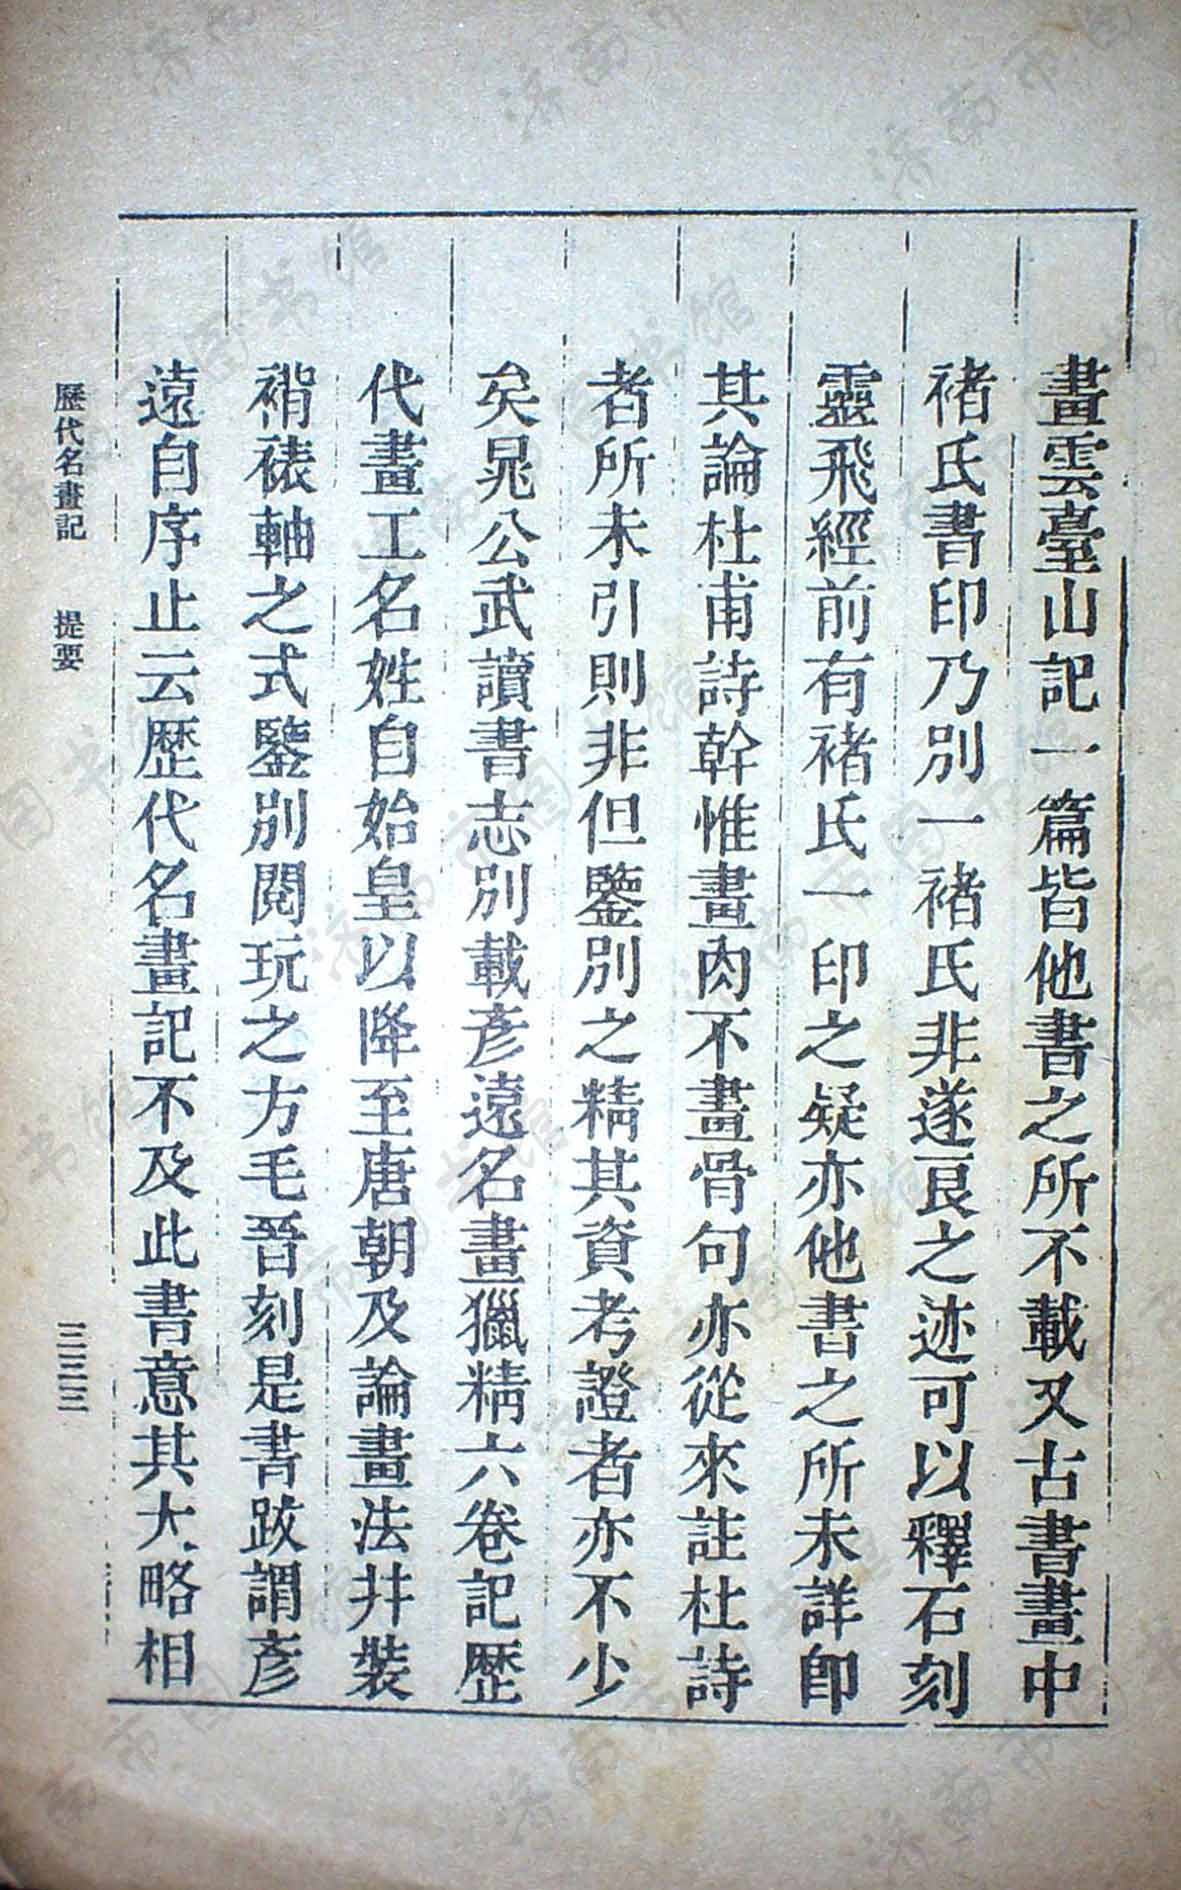 畫雲臺山記一篇皆他書之所不載又古書畫中
褚氏書印乃別一褚氏非遂良之迹可以釋石刻
靈飛經前有褚氏一印之疑亦他書之所未詳即
其論杜甫詩幹惟畫肉不畫骨句亦從來註杜詩
者所未引則非但鑒別之精其資考證者亦不少
矣晁公武讀書志別載彥遠名畫獵精六卷記歷
代畫工名姓自始皇以降至唐朝及論畫法幷裝
褙裱軸之式鑒別閱玩之方毛晉刻是書跋謂彥
遠自序止云歷代名畫記不及此書意其大略相
歷代名畫記 提要 三三三
济南市图书馆